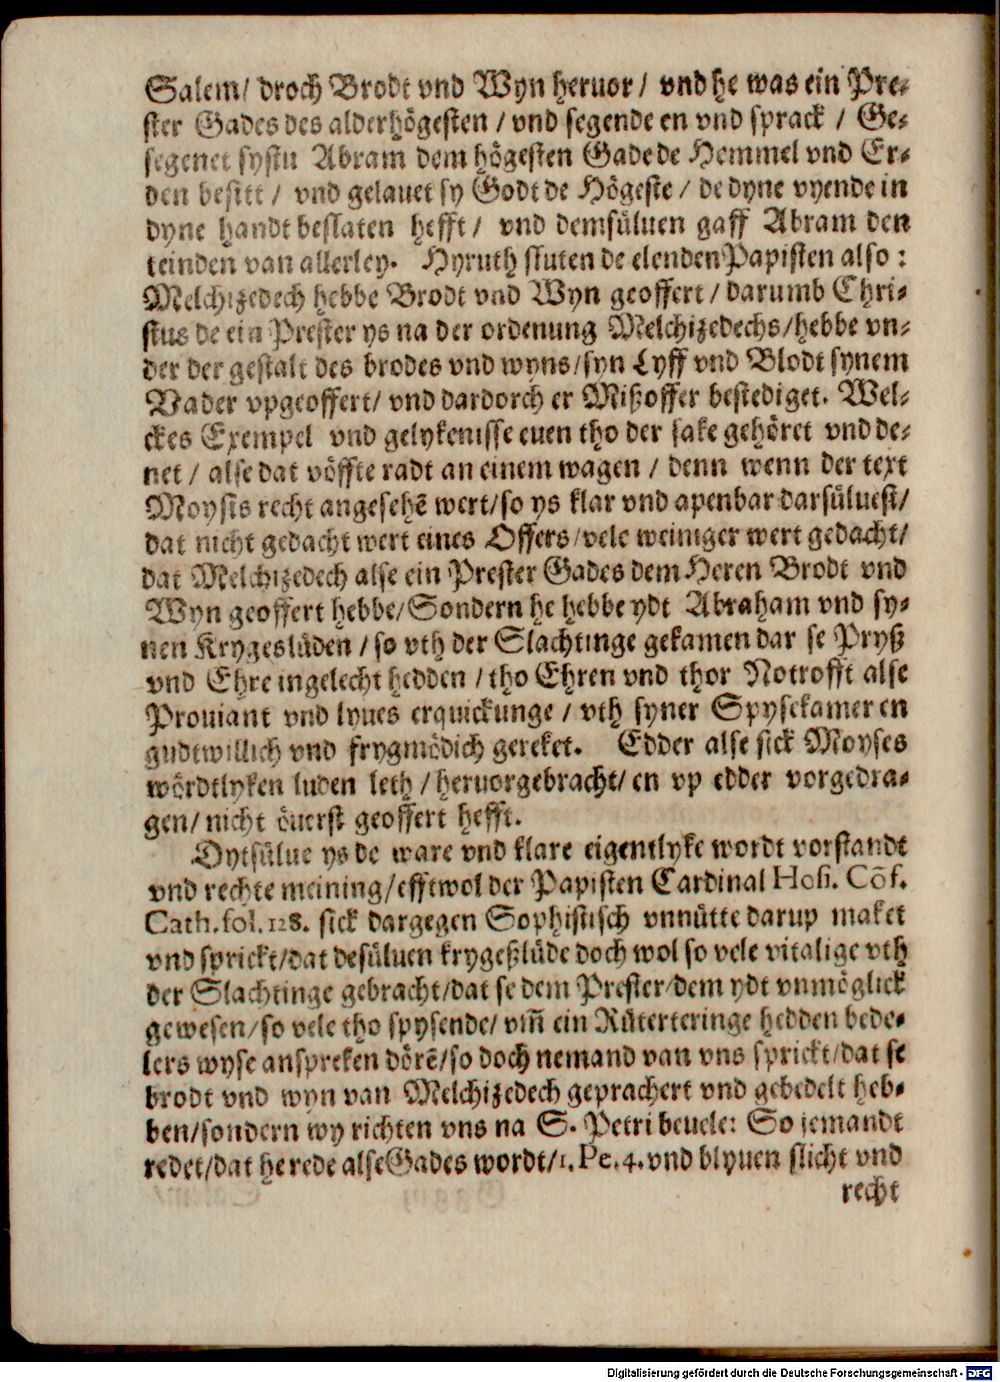 Salem/ droch Brodt vnd Wyn heruor/ vnd he was ein Pre-
ster Gades des alderhögesten / vnd segende en vnd sprack / Ge-
segenet systu Abram dem högesten Gade de Hemmel vnd Er-
den besitt / vnd gelauet sy Godt de Högeste / de dyne vyende in
dyne handt beslaten hefft / vnd demsüluen gaff Abram den
teinden van allerley. Hyruth sluten de elenden Papisten also :
Melchizedech hebbe Brodt vnd Wyn geoffert / darumb Chri-
stus de ein Prester ys na der ordenung Melchizedechs/hebbe vn-
der der gestalt des brodes vnd wyns/syn Lyff vnd Blodt synem
Vader vpgeoffert/ vnd dardorch er Mißoffer bestediget. Wel-
ckes Exempel vnd gelykenisse euen tho der sake gehöret vnd de-
net / alse dat vöffte radt an einem wagen / denn wenn der text
Moysis recht angesehē wert/so ys klar vnd apenbar darsüluest/
dat nicht gedacht wert eines Offers/vele weiniger wert gedacht/
dat Melchizedech alse ein Prester Gades dem Heren Brodt vnd
Wyn geoffert hebbe/Sondern he hebbe ydt Abraham vnd sy-
nen Krygeslüden / so vth der Slachtinge gekamen dar se Pryß
vnd Ehre ingelecht hedden / tho Ehren vnd thor Notrofft alse
Prouiant vnd lyues erquickunge / vth syner Spysekamer en
gudtwillich vnd frygmödich gereket. Edder alse sick Moyses
wördtlyken luden leth / heruorgebracht/ en vp edder vorgedra-
gen/ nicht öuerst geoffert hefft.
Dytsülue ys de ware vnd klare eigentlyke wordt vorstandt
vnd rechte meining/efftwol der Papisten Cardinal Hosi. Cōf.
Cath. fol. 128. sick dargegen Sophistisch vnnütte darup maket
vnd sprickt/dat desüluen krygeßlüde doch wol so vele vitalige vth
der Slachtinge gebracht/dat se dem Prester/dem ydt vnmöglick
gewesen/so vele tho spysende/ vm̄ ein Rüterteringe hedden bede-
lers wyse anspreken dörē/so doch nemand van vns sprickt/dat se
brodt vnd wyn van Melchizedech geprachert vnd gebedelt heb-
ben/sondern wy richten vns na S. Petri beuele: So jemandt
redet/dat he rede alse Gades wordt/1. Pe. 4. vnd blyuen slicht vnd
recht
Digitalisierung gefördert durch die Deutsche Forschungsgemeinschaft - DFG